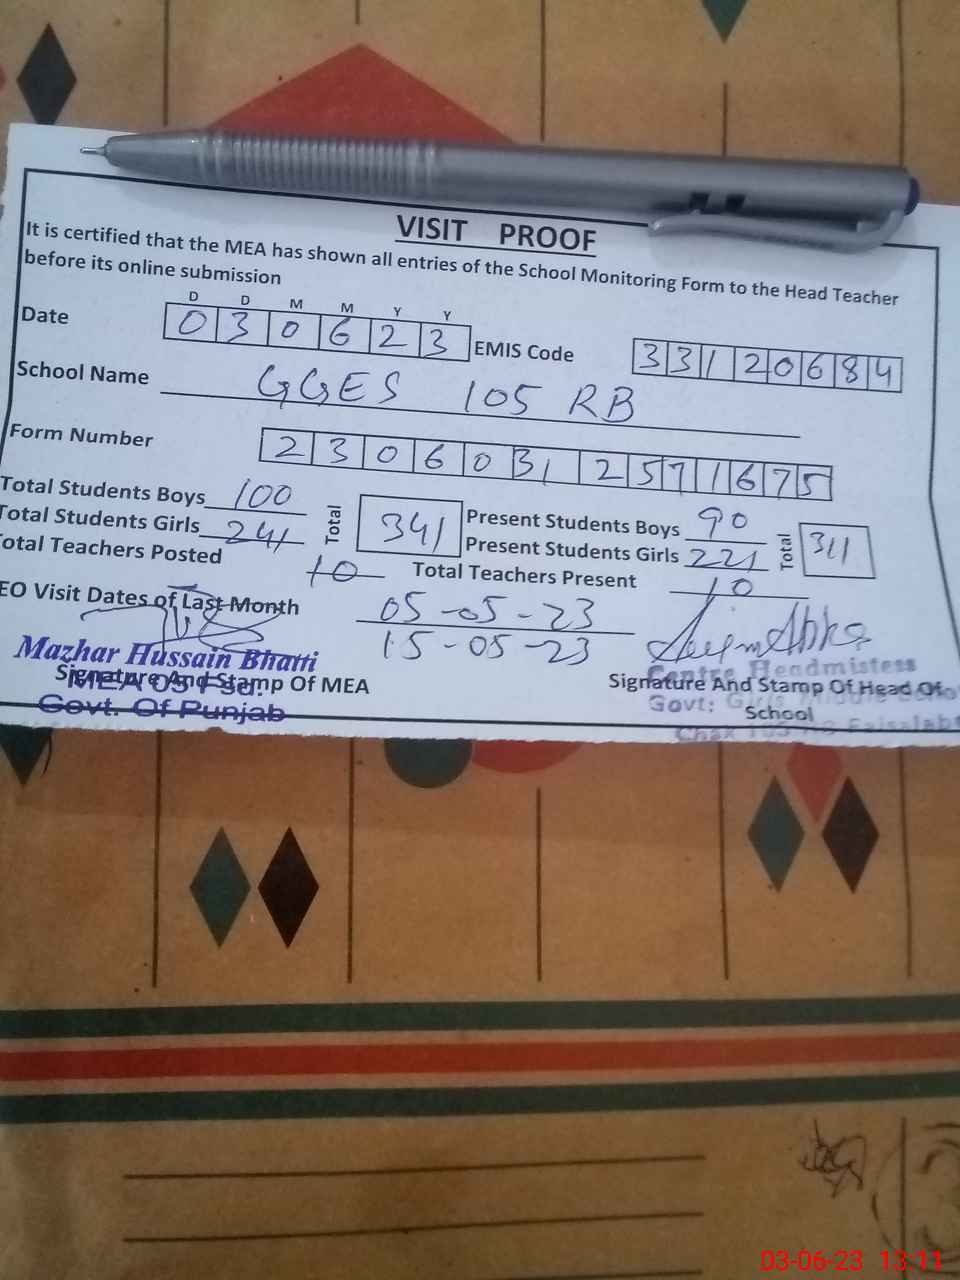 VISIT PROOF
It is certified that the MEA has shown all entries of the School Monitoring Form to the Head Teacher
before its online submission
D D M M Y Y
Date 0 3 0 6 2 3 EMIS Code 3 3 1 2 0 6 8 4
School Name GGES 105 RB
Form Number 2 3 0 6 0 3 1 2 5 7 1 6 7 5
Total Students Boys 100 Total 341 Present Students Boys 90 Total 311
Total Students Girls 241 Present Students Girls 221
Total Teachers Posted 10 Total Teachers Present 10
EO Visit Dates of Last Month 05-05-23
15-05-23
Mazhar Hussain Bhatti
MEA 05 Fsd.
Govt. Of Punjab
Signature And Stamp Of MEA
Centre Headmistess
Govt:
Signature And Stamp Of Head Of
School
03-06-23 13:11